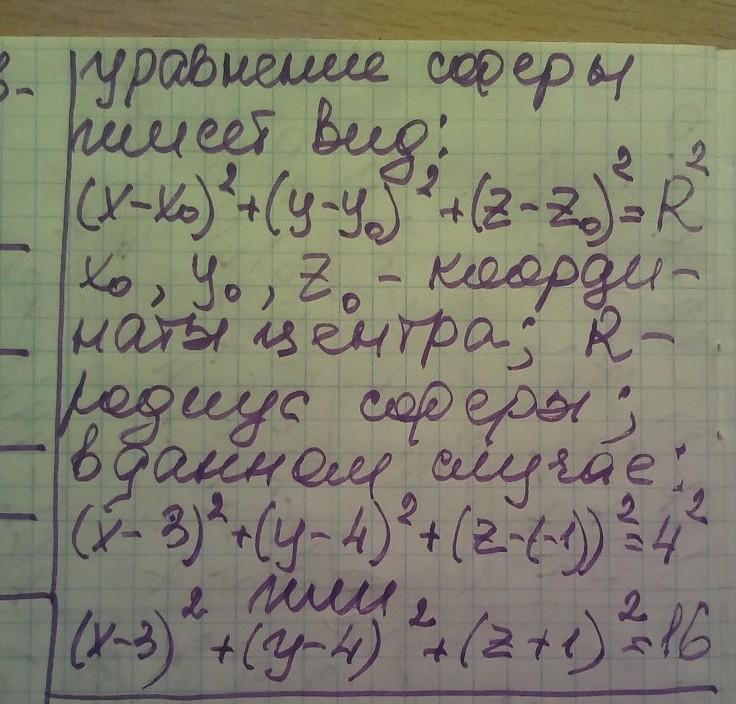 в-
уравнение сферы
имеет вид:
(x-x₀)²+(y-y₀)²+(z-z₀)²=R²
x₀, y₀, z₀ - коорди-
наты центра; R-
радиус сферы;
в данном случае:
(x-3)²+(y-4)²+(z-(-1))²=4²
или
(x-3)²+(y-4)²+(z+1)²=16